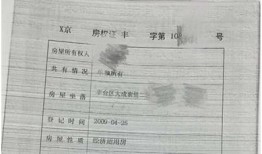 X京 房权证 丰 字第 10 号
房屋所有权人
共有情况 单独所有
房屋坐落 丰台区
登记时间 2009-04-26
房屋性质 经济适用房